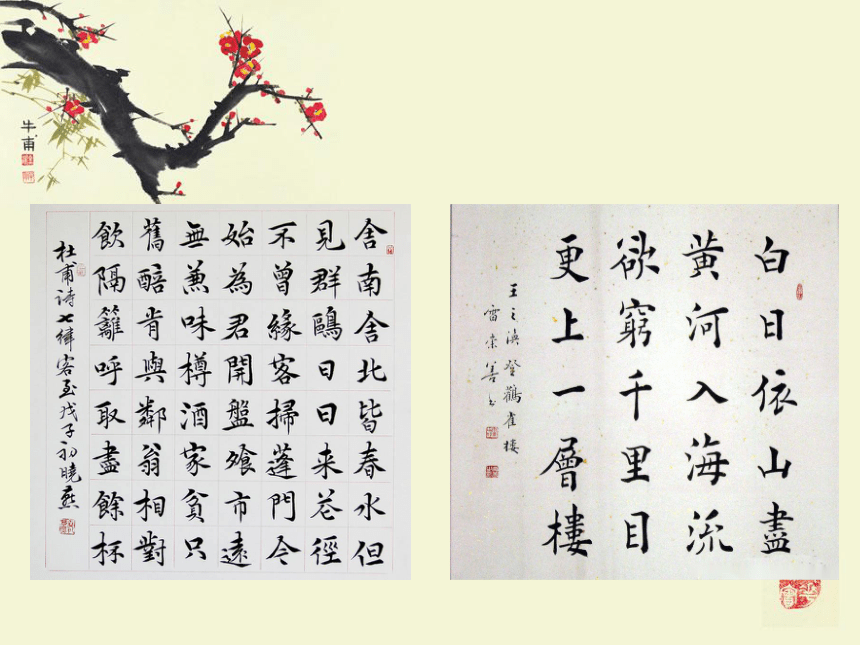 牛甫
舍南舍北皆春水但
見群鷗日日来花徑
不曾緣客掃蓬門今
始為君開盤飱市遠
無兼味樽酒家貧只
舊醅肯與鄰翁相對
飲隔籬呼取盡餘杯
杜甫詩七律客至戊子初曉燕
白日依山盡
黄河入海流
欲窮千里目
更上一層樓
王之渙登鸛雀樓
雷崇善书